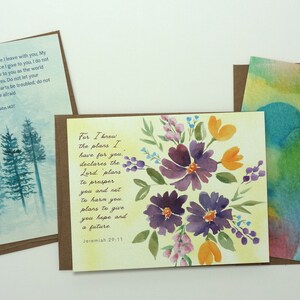 I leave with you, My
I give to you. I do not
to you as the world
Do not let your
be troubled; do not
afraid.
For I know
the plans I
have for you
declares the
Lord plans
to prosper
you and not
to harm you,
plans to give
you hope and
a future
Jeremiah 29:11